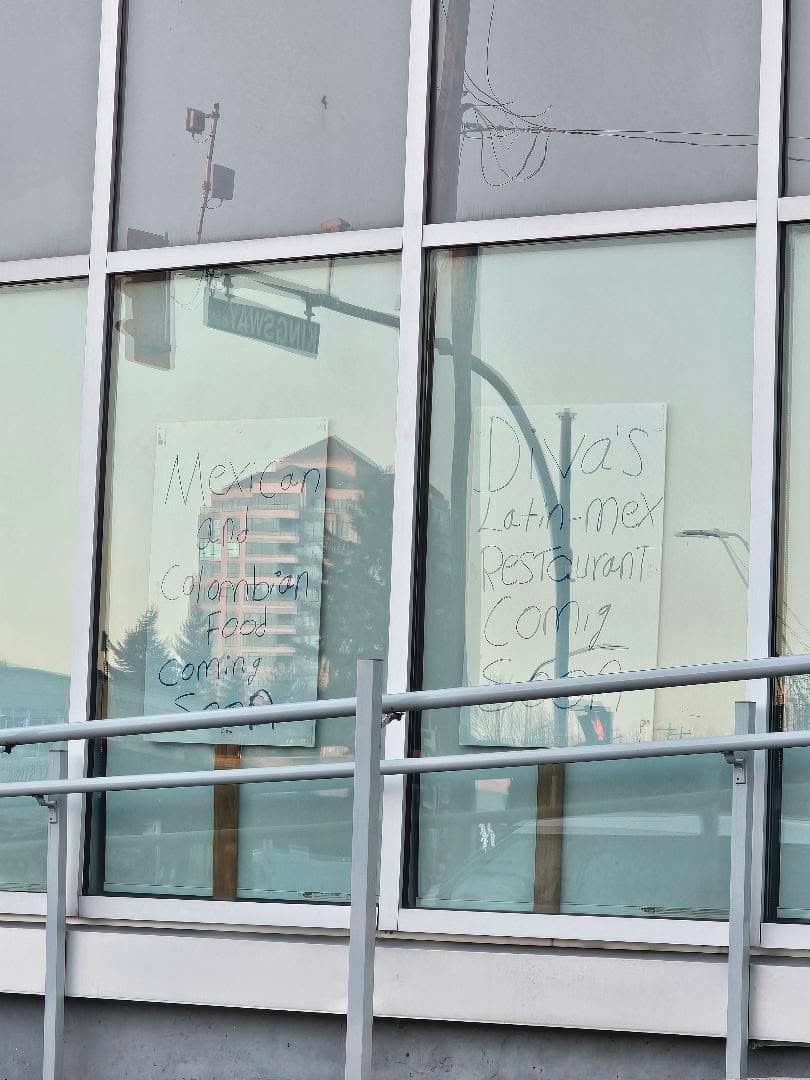 KINGSWAY
Mexican
and
Colombian
Food
coming
Soon
Diva's
Latin-mex
Restaurant
Comig
Soon